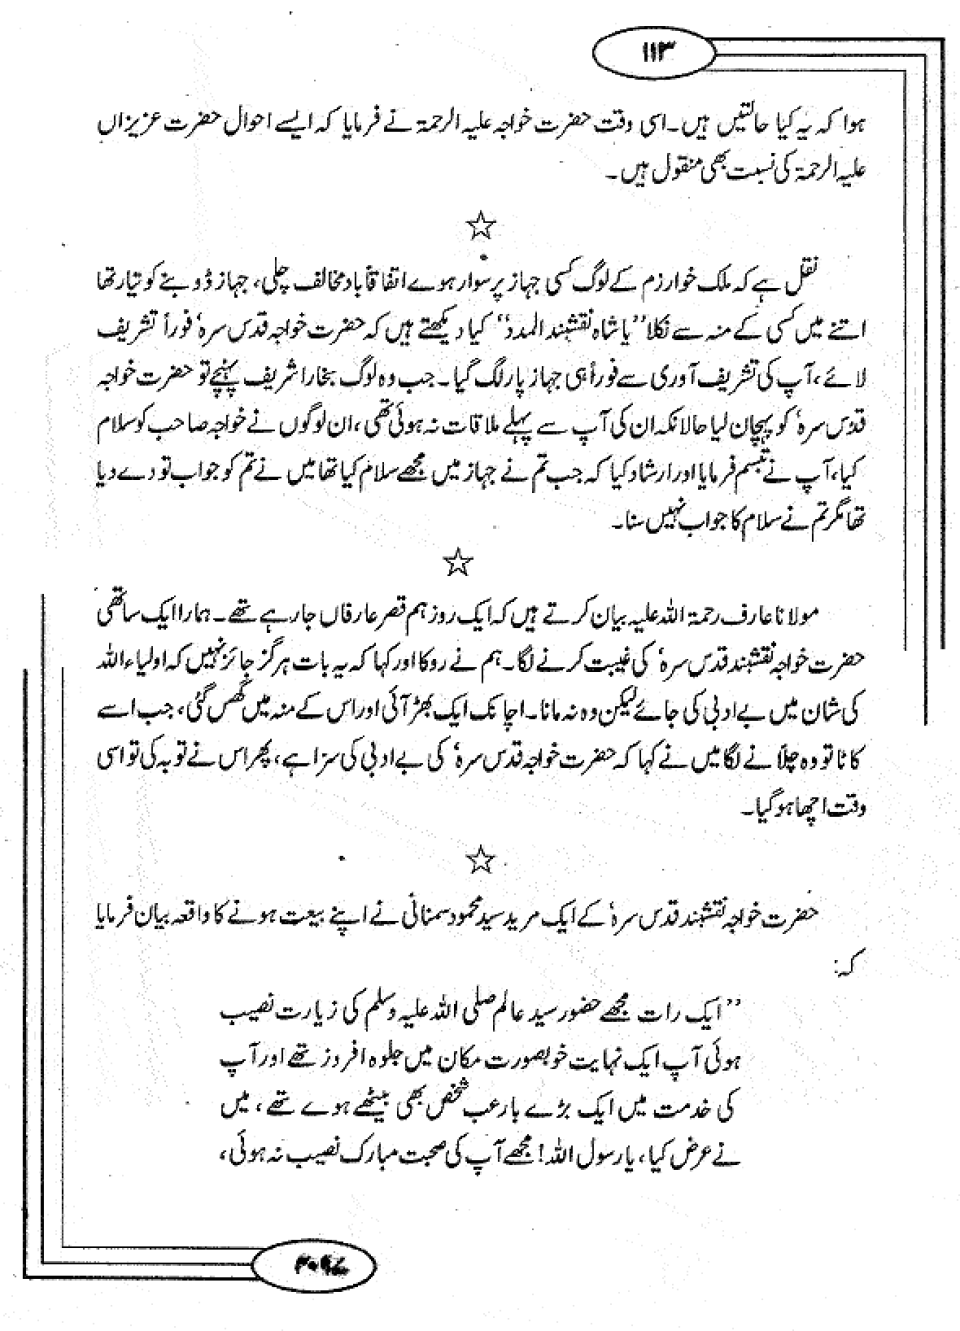 ۱۱۳
ہوا کہ یہ کیا حالتیں ہیں۔ اسی وقت حضرت خواجہ علیہ الرحمۃ نے فرمایا کہ ایسے احوال حضرت عزیزاں
علیہ الرحمۃ کی نسبت بھی منقول ہیں۔
نقل ہے کہ ملک خوارزم کے لوگ کسی جہاز پر سوار ہوے اتفاقاً باد مخالف چلی، جہاز ڈوبنے کو تیار تھا
اتنے میں کسی کے منہ سے نکلا ”یا شاہ نقشبند المدد“ کیا دیکھتے ہیں کہ حضرت خواجہ قدس سرہٗ فوراً تشریف
لائے، آپ کی تشریف آوری سے فوراً ہی جہاز پار لگ گیا۔ جب وہ لوگ بخارا شریف پہنچے تو حضرت خواجہ
قدس سرہٗ کو پہچان لیا حالانکہ ان کی آپ سے پہلے ملاقات نہ ہوئی تھی، ان لوگوں نے خواجہ صاحب کو سلام
کیا، آپ نے تبسم فرمایا اور ارشاد کیا کہ جب تم نے جہاز میں مجھے سلام کیا تھا میں نے تم کو جواب تو دے دیا
تھا مگر تم نے سلام کا جواب نہیں سنا۔
مولانا عارف رحمۃ اللہ علیہ بیان کرتے ہیں کہ ایک روز ہم قصر عارفاں جا رہے تھے۔ ہمارا ایک ساتھی
حضرت خواجہ نقشبند قدس سرہٗ کی غیبت کرنے لگا۔ ہم نے روکا اور کہا کہ یہ بات ہرگز جائز نہیں کہ اولیاء اللہ
کی شان میں بے ادبی کی جائے لیکن وہ نہ مانا۔ اچانک ایک بھڑ آئی اور اس کے منہ میں گھس گئی، جب اسے
کاٹا تو وہ چلّانے لگا میں نے کہا کہ حضرت خواجہ قدس سرہٗ کی بے ادبی کی سزا ہے، پھر اس نے توبہ کی تو اسی
وقت اچھا ہو گیا۔
حضرت خواجہ نقشبند قدس سرہٗ کے ایک مرید سید محمود سمنانی نے اپنے بیعت ہونے کا واقعہ بیان فرمایا
کہ:
”ایک رات مجھے حضور سید عالم صلی اللہ علیہ وسلم کی زیارت نصیب
ہوئی آپ ایک نہایت خوبصورت مکان میں جلوہ افروز تھے اور آپ
کی خدمت میں ایک بڑے بارعب شخص بھی بیٹھے ہوے تھے، میں
نے عرض کیا، یا رسول اللہ! مجھے آپ کی صحبت مبارک نصیب نہ ہوئی،